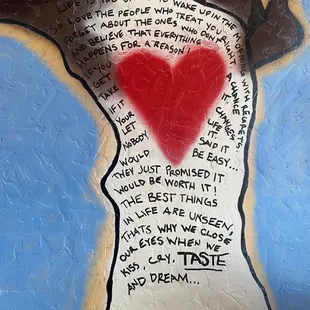 LIFE IS TOO SHORT TO WAKE UP IN THE MORNING WITH REGRETS.
SO LOVE THE PEOPLE WHO TREAT YOU RIGHT,
FORGET ABOUT THE ONES WHO DON'T
AND BELIEVE THAT EVERYTHING
HAPPENS FOR A REASON!
IF YOU
GET A CHANCE
TAKE IT.
IF IT CHANGES
YOUR LIFE
LET IT.
NOBODY SAID IT
WOULD BE EASY...
THEY JUST PROMISED IT
WOULD BE WORTH IT!
THE BEST THINGS
IN LIFE ARE UNSEEN,
THATS WHY WE CLOSE
OUR EYES WHEN WE
KISS, CRY, TASTE
AND DREAM...